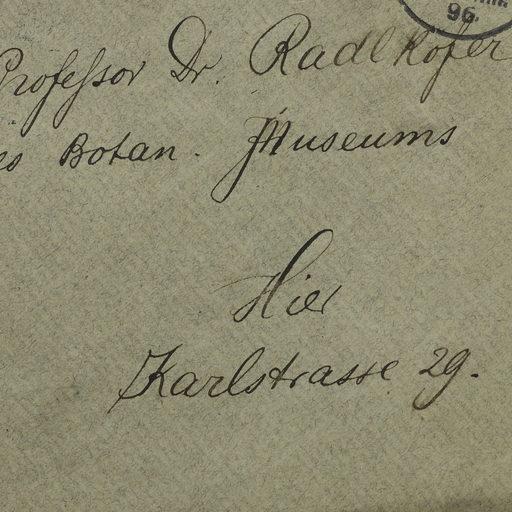 96.
Professor Dr. Radlkofer
es Botan. Museums
Hier
Karlstrasse 29.